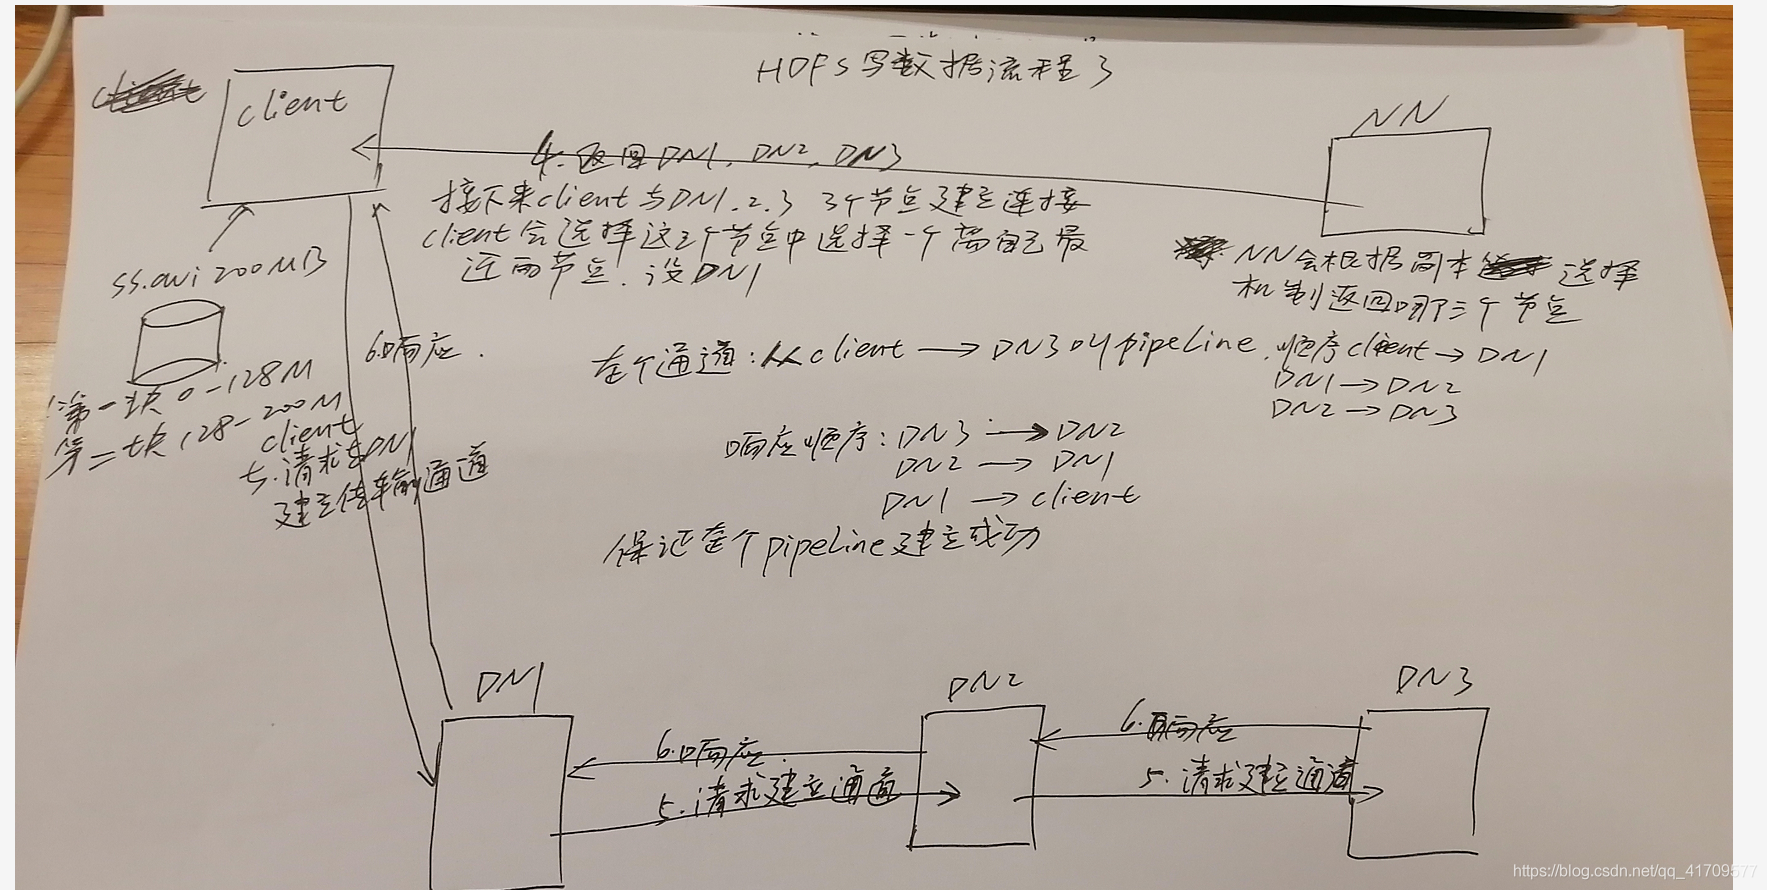 HDFS写数据流程3
client
NN
4. 返回DN1, DN2, DN3
接下来client与DN1.2.3 3个节点建立连接
client会选择这三个节点中选择一个离自己最
近的节点.设DN1
NN会根据副本选择
机制返回哪三个节点
ss.avi 200MB
第一块 0-128M
第二块 128-200M
client
5.请求与DN1
建立传输通道
6.响应.
在个通道:从client → DN3的pipeline.顺序client → DN1
DN1 → DN2
DN2 → DN3
响应顺序: DN3 → DN2
DN2 → DN1
DN1 → client
保证在个pipeline建立成功
DN1
DN2
DN3
6.响应
5.请求建立通道
6.响应
5.请求建立通道
https://blog.csdn.net/qq_41709577